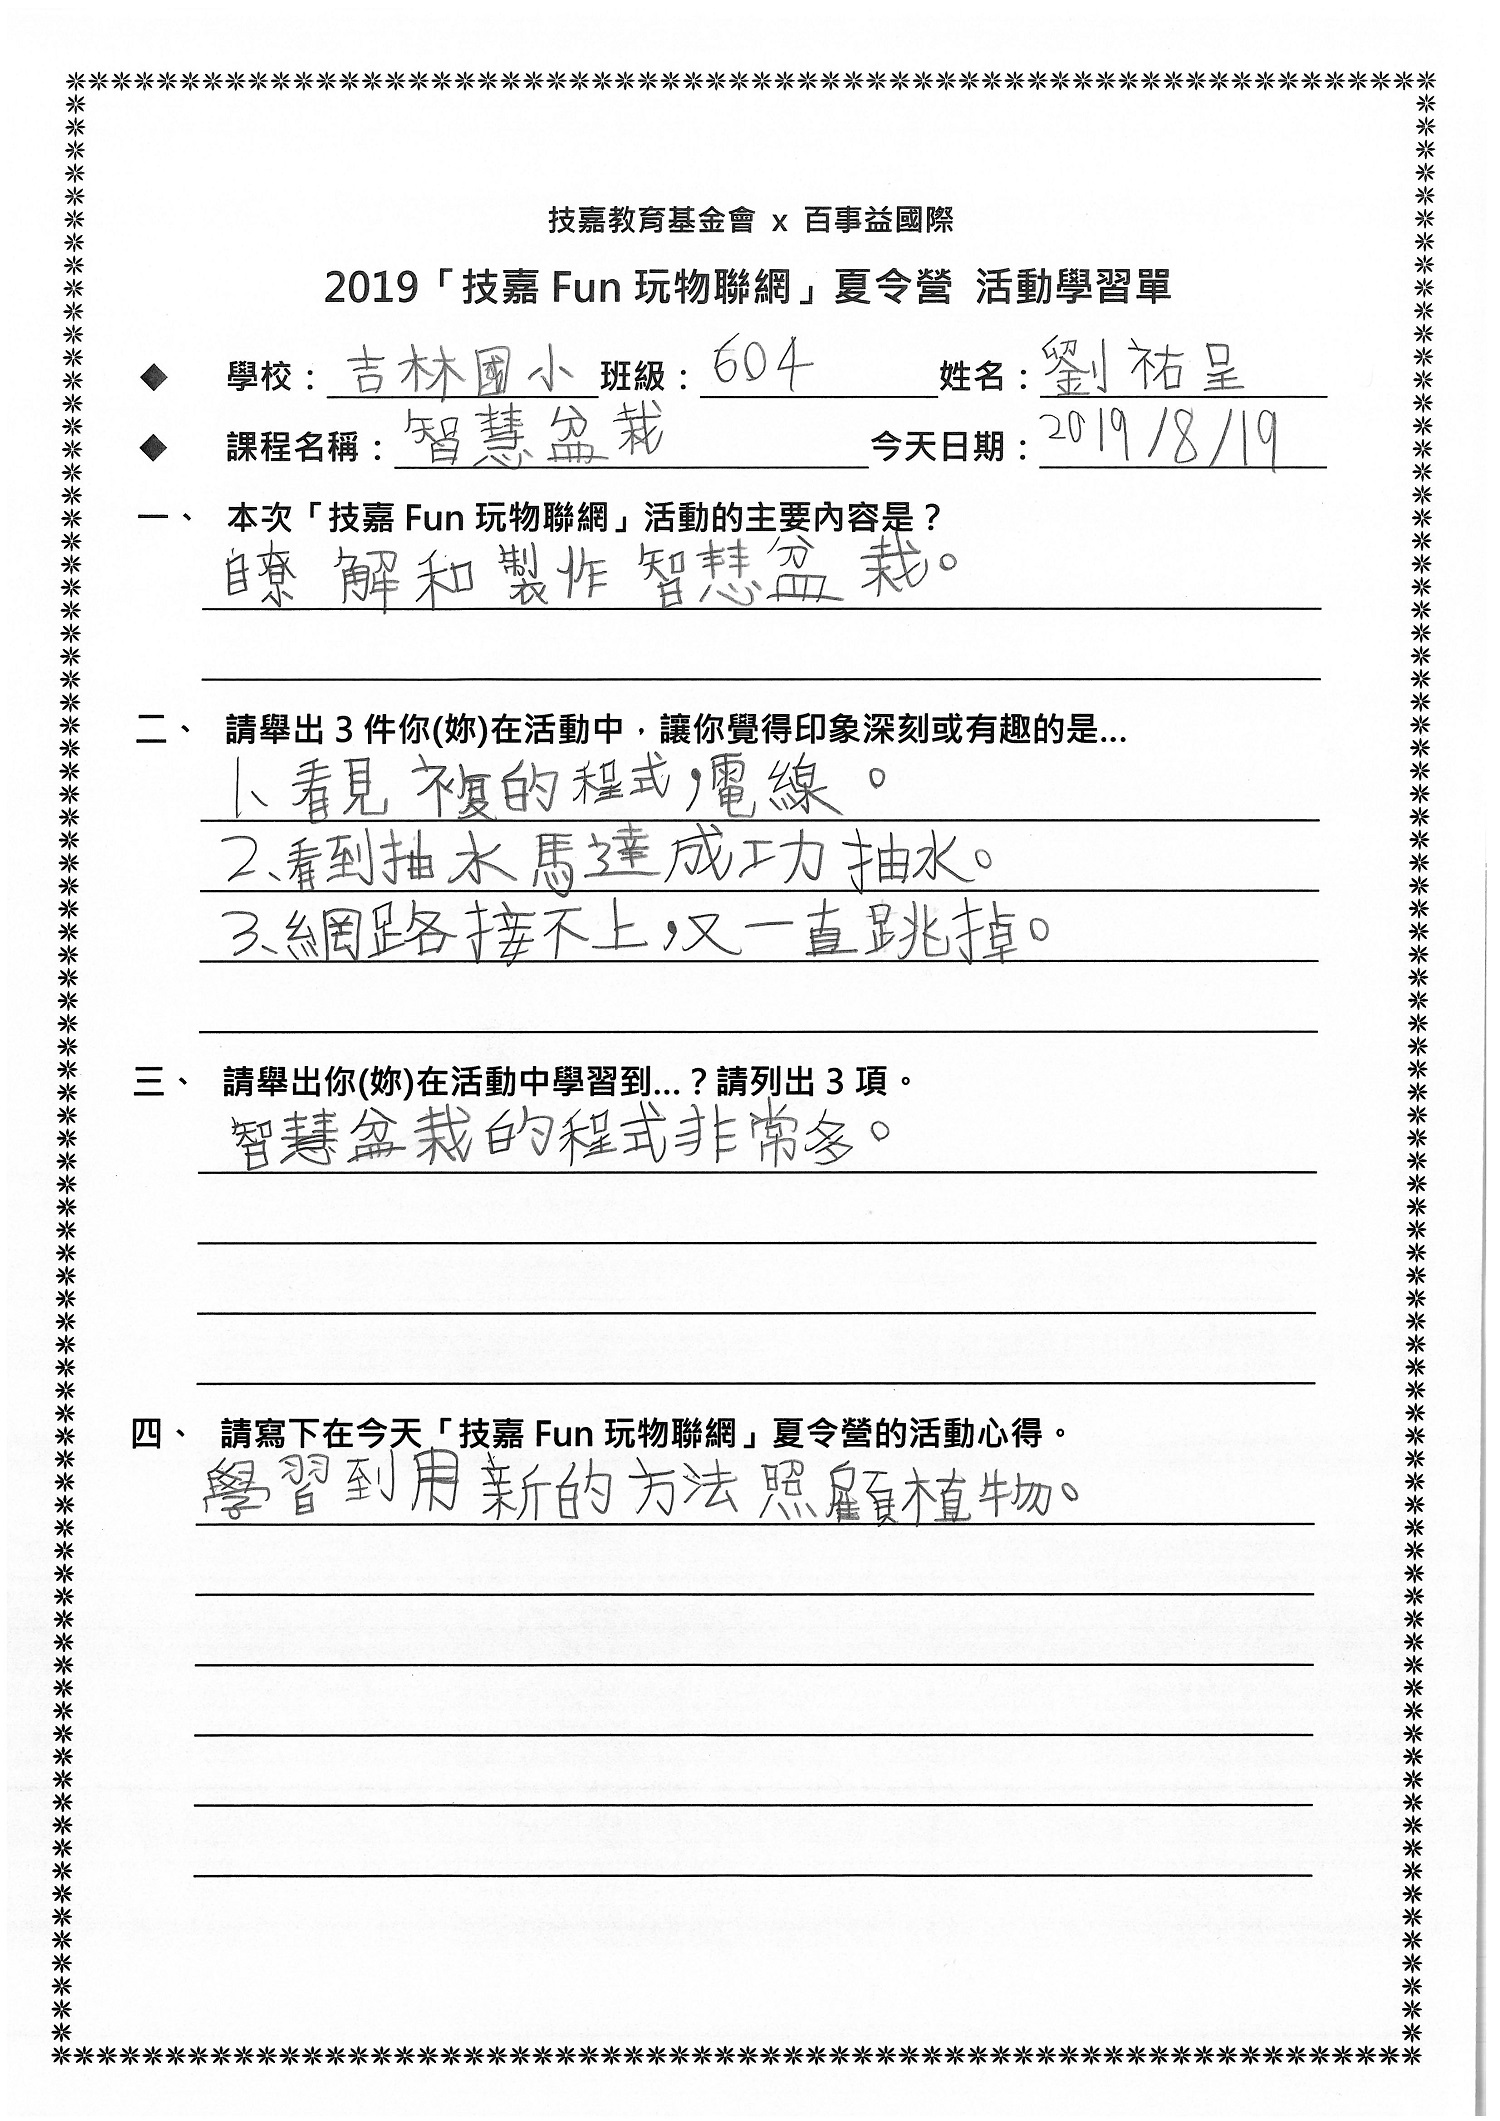 技嘉教育基金會 x 百事益國際
2019「技嘉 Fun 玩物聯網」夏令營 活動學習單
◆ 學校：吉林國小 班級：604 姓名：劉祐呈
◆ 課程名稱：智慧盆栽 今天日期：2019/8/19
一、 本次「技嘉 Fun 玩物聯網」活動的主要內容是？
瞭解和製作智慧盆栽。
二、 請舉出 3 件你(妳)在活動中，讓你覺得印象深刻或有趣的是...
1、看見複的程式，電線。
2、看到抽水馬達成功抽水。
3、網路接不上，又一直跳掉。
三、 請舉出你(妳)在活動中學習到...？請列出 3 項。
智慧盆栽的程式非常多。
四、 請寫下在今天「技嘉 Fun 玩物聯網」夏令營的活動心得。
學習到用新的方法照顧植物。